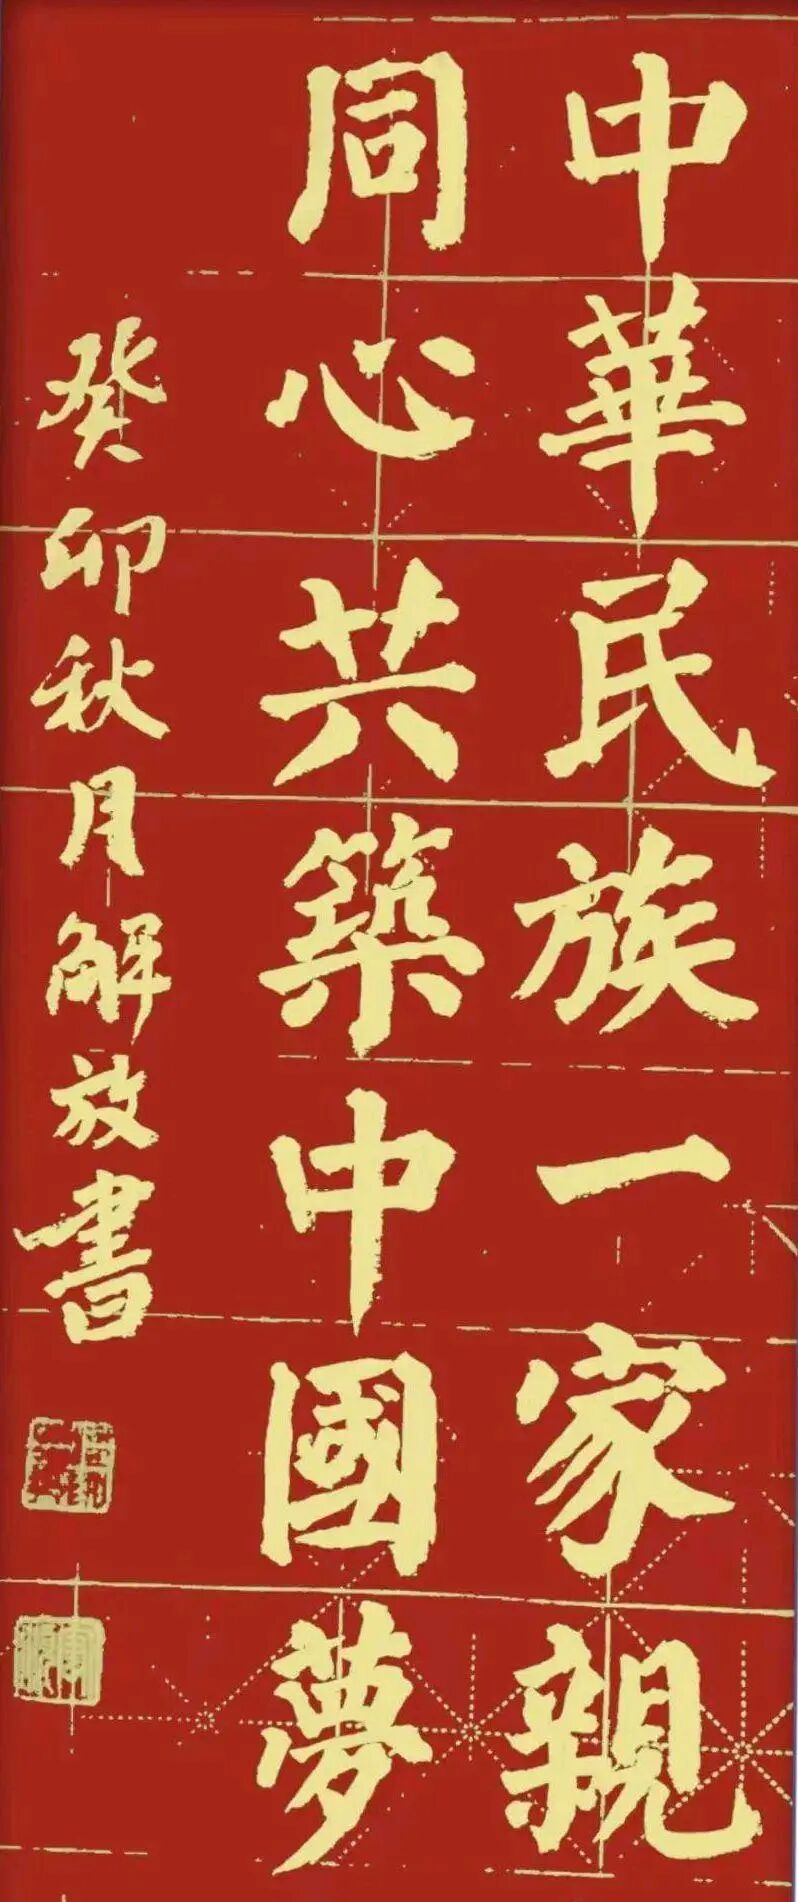 中華民族一家親
同心共築中國夢
癸卯秋月解放書